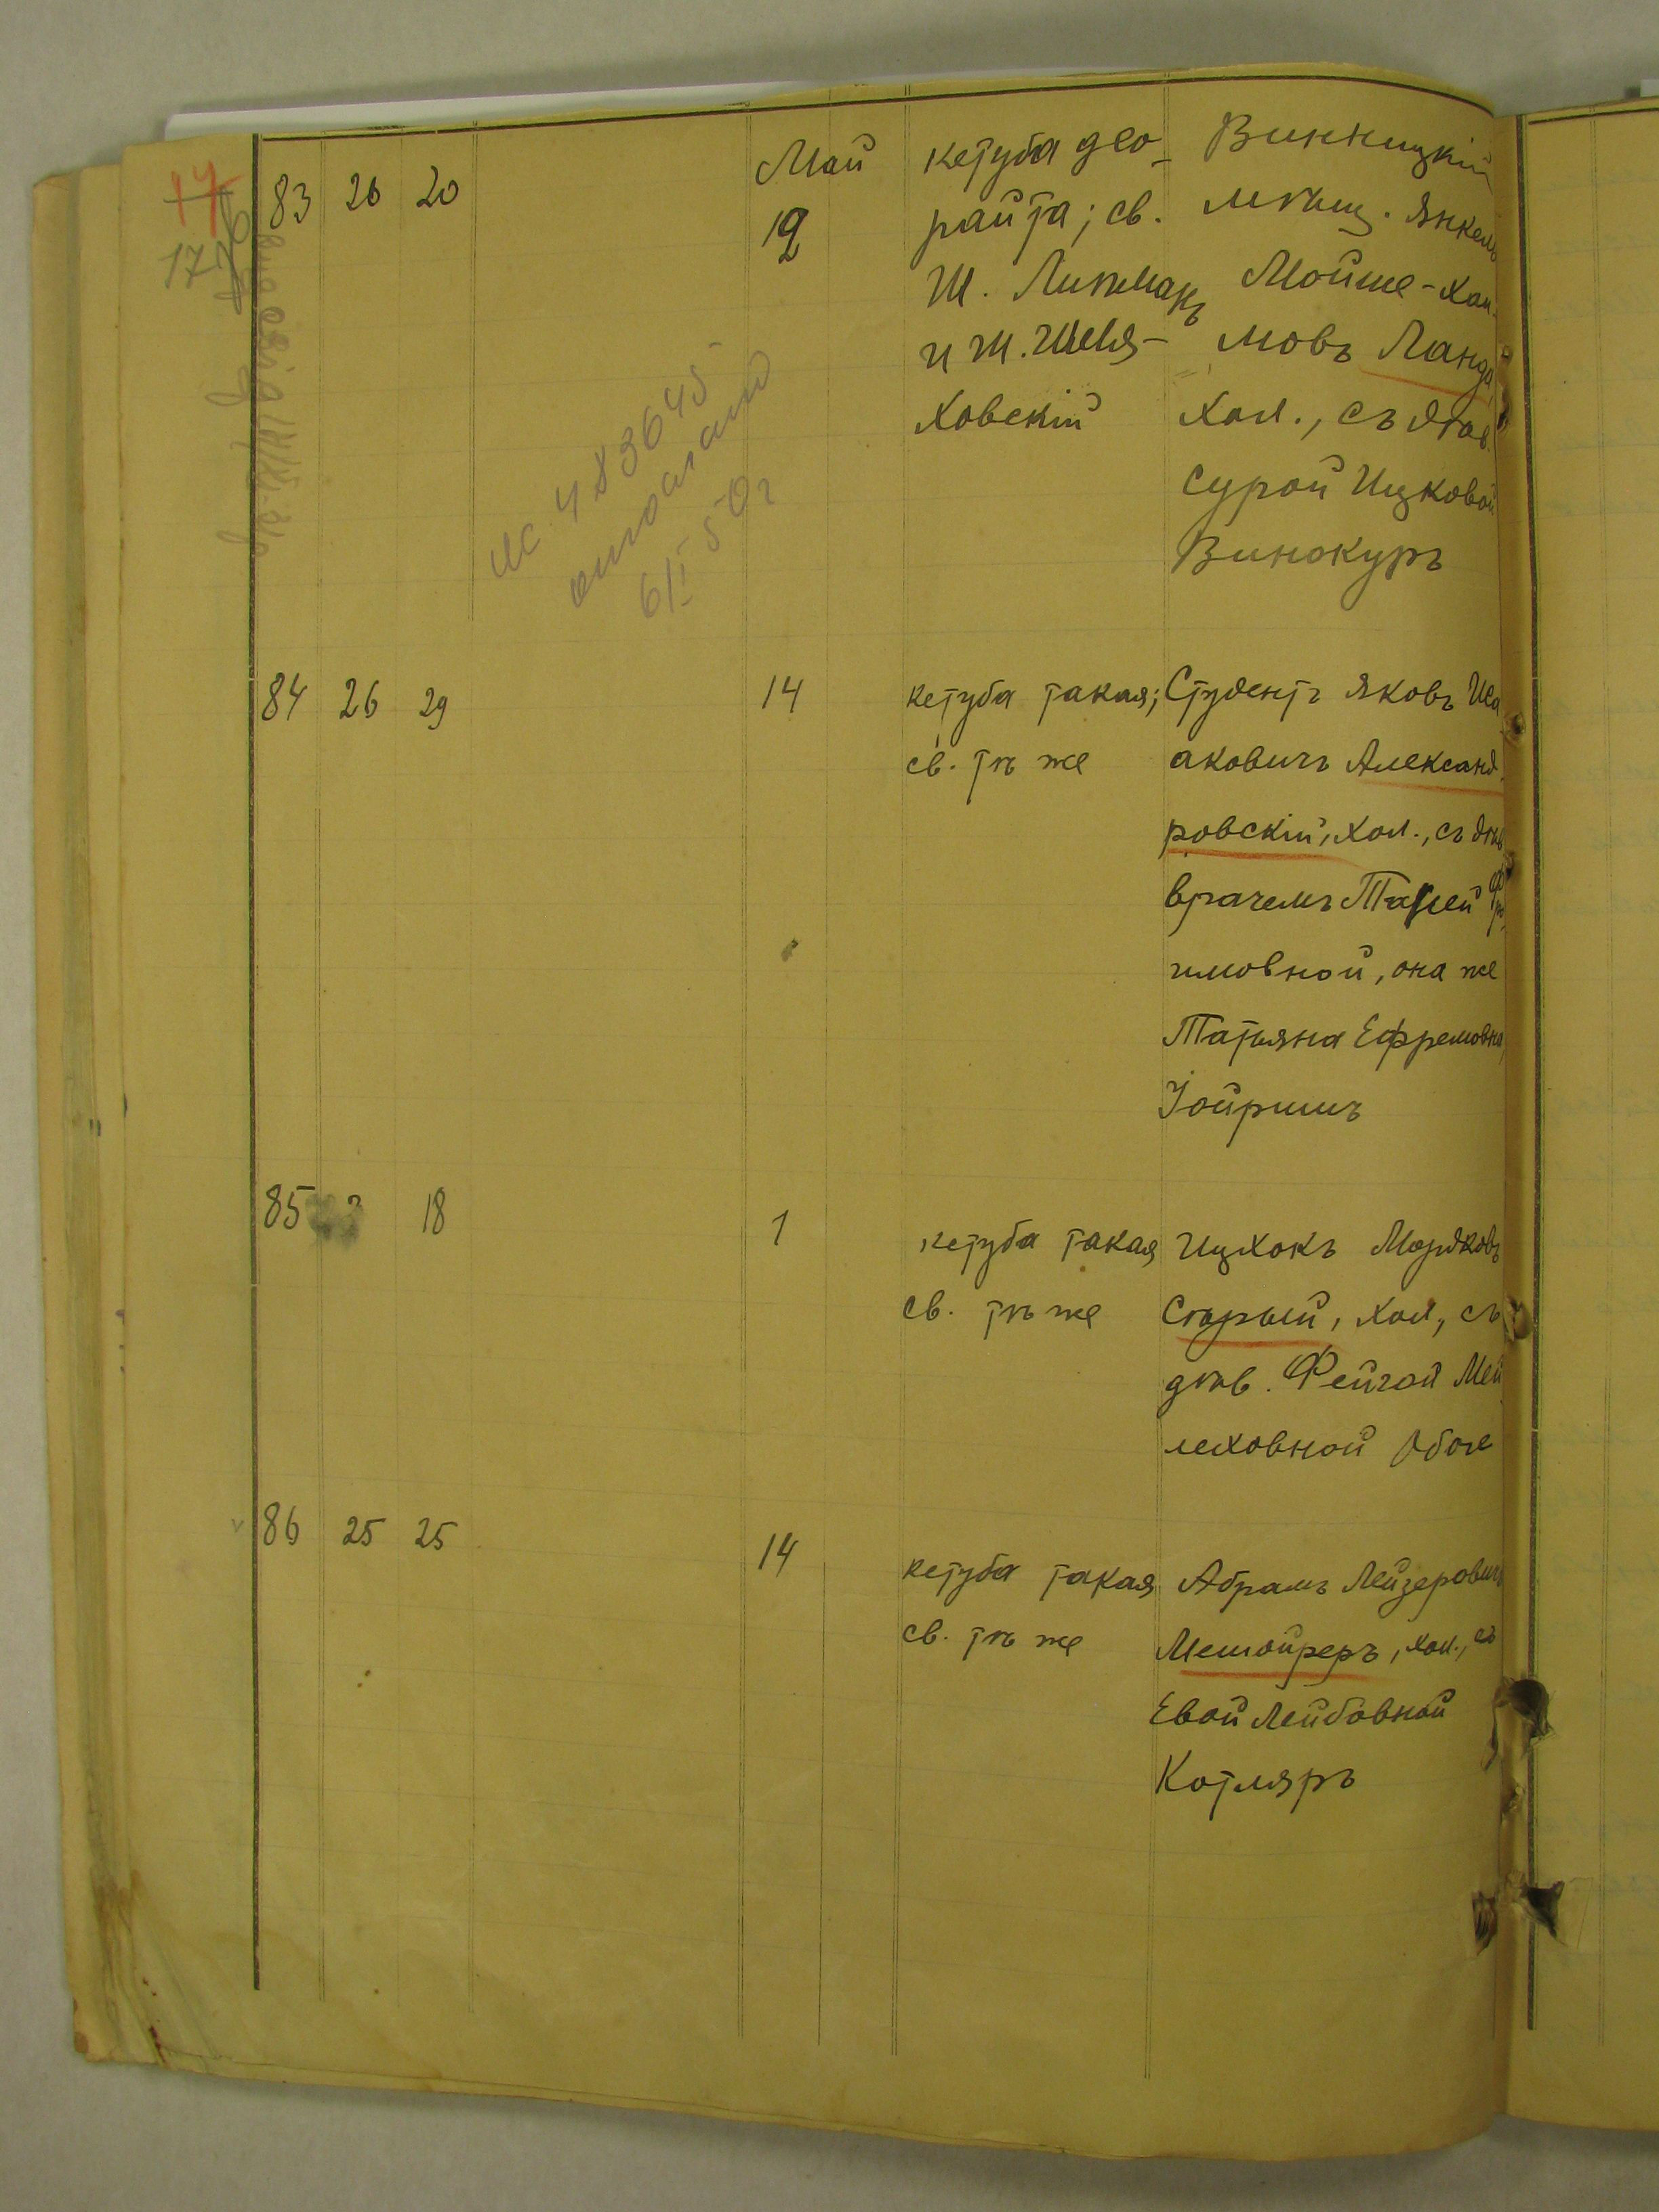 83 26 20
Май
12
кетуба део-
райта; св.
Ш. Липманъ
и Ш. Шеля-
ховскій
Винницкій
мѣщ. Янкель
Мойше-Хаи-
мовъ Ланда,
хол., съ дѣв.
Сурой Ицковой
Винокуръ
ИС 483645
отослано
6/I 50г
84 26 29
14
кетуба такая;
св. тѣ же
Студентъ Яковъ Иса-
аковичъ Александ-
ровскій, хол., съ дѣв.
врачемъ Таней
имовной, она же
Татьяна Ефремовна,
Іойришъ
85
18
1
кетуба такая
св. тѣ же
Ицхокъ Мордковъ
Старый, хол., съ
дѣв. Фейгой Мей-
леховной
86 25 25
14
кетуба такая
св. тѣ же
Абрамъ Лейзеровичъ
Мешойреръ, хол., съ
Евой Лейбовной
Котляръ